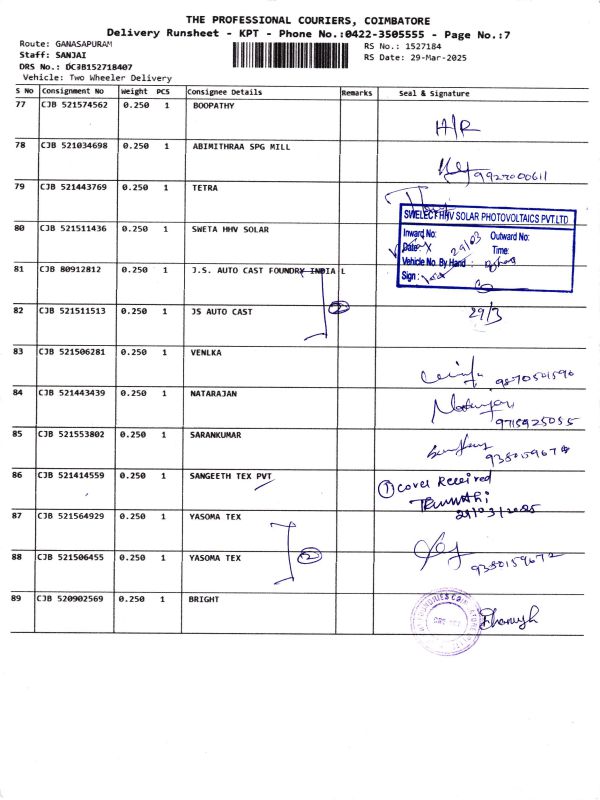 THE PROFESSIONAL COURIERS, COIMBATORE
Delivery Runsheet - KPT - Phone No.:0422-3505555 - Page No.:7
Route: GANASAPURAM
RS No.: 1527184
Staff: SANJAI
RS Date: 29-Mar-2025
DRS No.: DCJB152718407
Vehicle: Two Wheeler Delivery
S No Consignment No Weight PCS Consignee Details Remarks Seal & Signature
77 CJB 521574562 0.250 1 BOOPATHY H/R
78 CJB 521034698 0.250 1 ABIMITHRAA SPG MILL
79 CJB 521443769 0.250 1 TETRA
80 CJB 521511436 0.250 1 SWETA HHV SOLAR
SWELECT HHV SOLAR PHOTOVOLTAICS PVT.LTD
Inward No: Outward No:
Date: 29/03 Time:
Vehicle No. By Hand :
Sign :
81 CJB 80912812 0.250 1 J.S. AUTO CAST FOUNDRY INDIA L
82 CJB 521511513 0.250 1 JS AUTO CAST 2 29/3
83 CJB 521506281 0.250 1 VENLKA
84 CJB 521443439 0.250 1 NATARAJAN 9715925055
85 CJB 521553802 0.250 1 SARANKUMAR
86 CJB 521414559 0.250 1 SANGEETH TEX PVT 1 Cover Received
29/03/2025
87 CJB 521564929 0.250 1 YASOMA TEX
88 CJB 521506455 0.250 1 YASOMA TEX 2 9380159672
89 CJB 520902569 0.250 1 BRIGHT